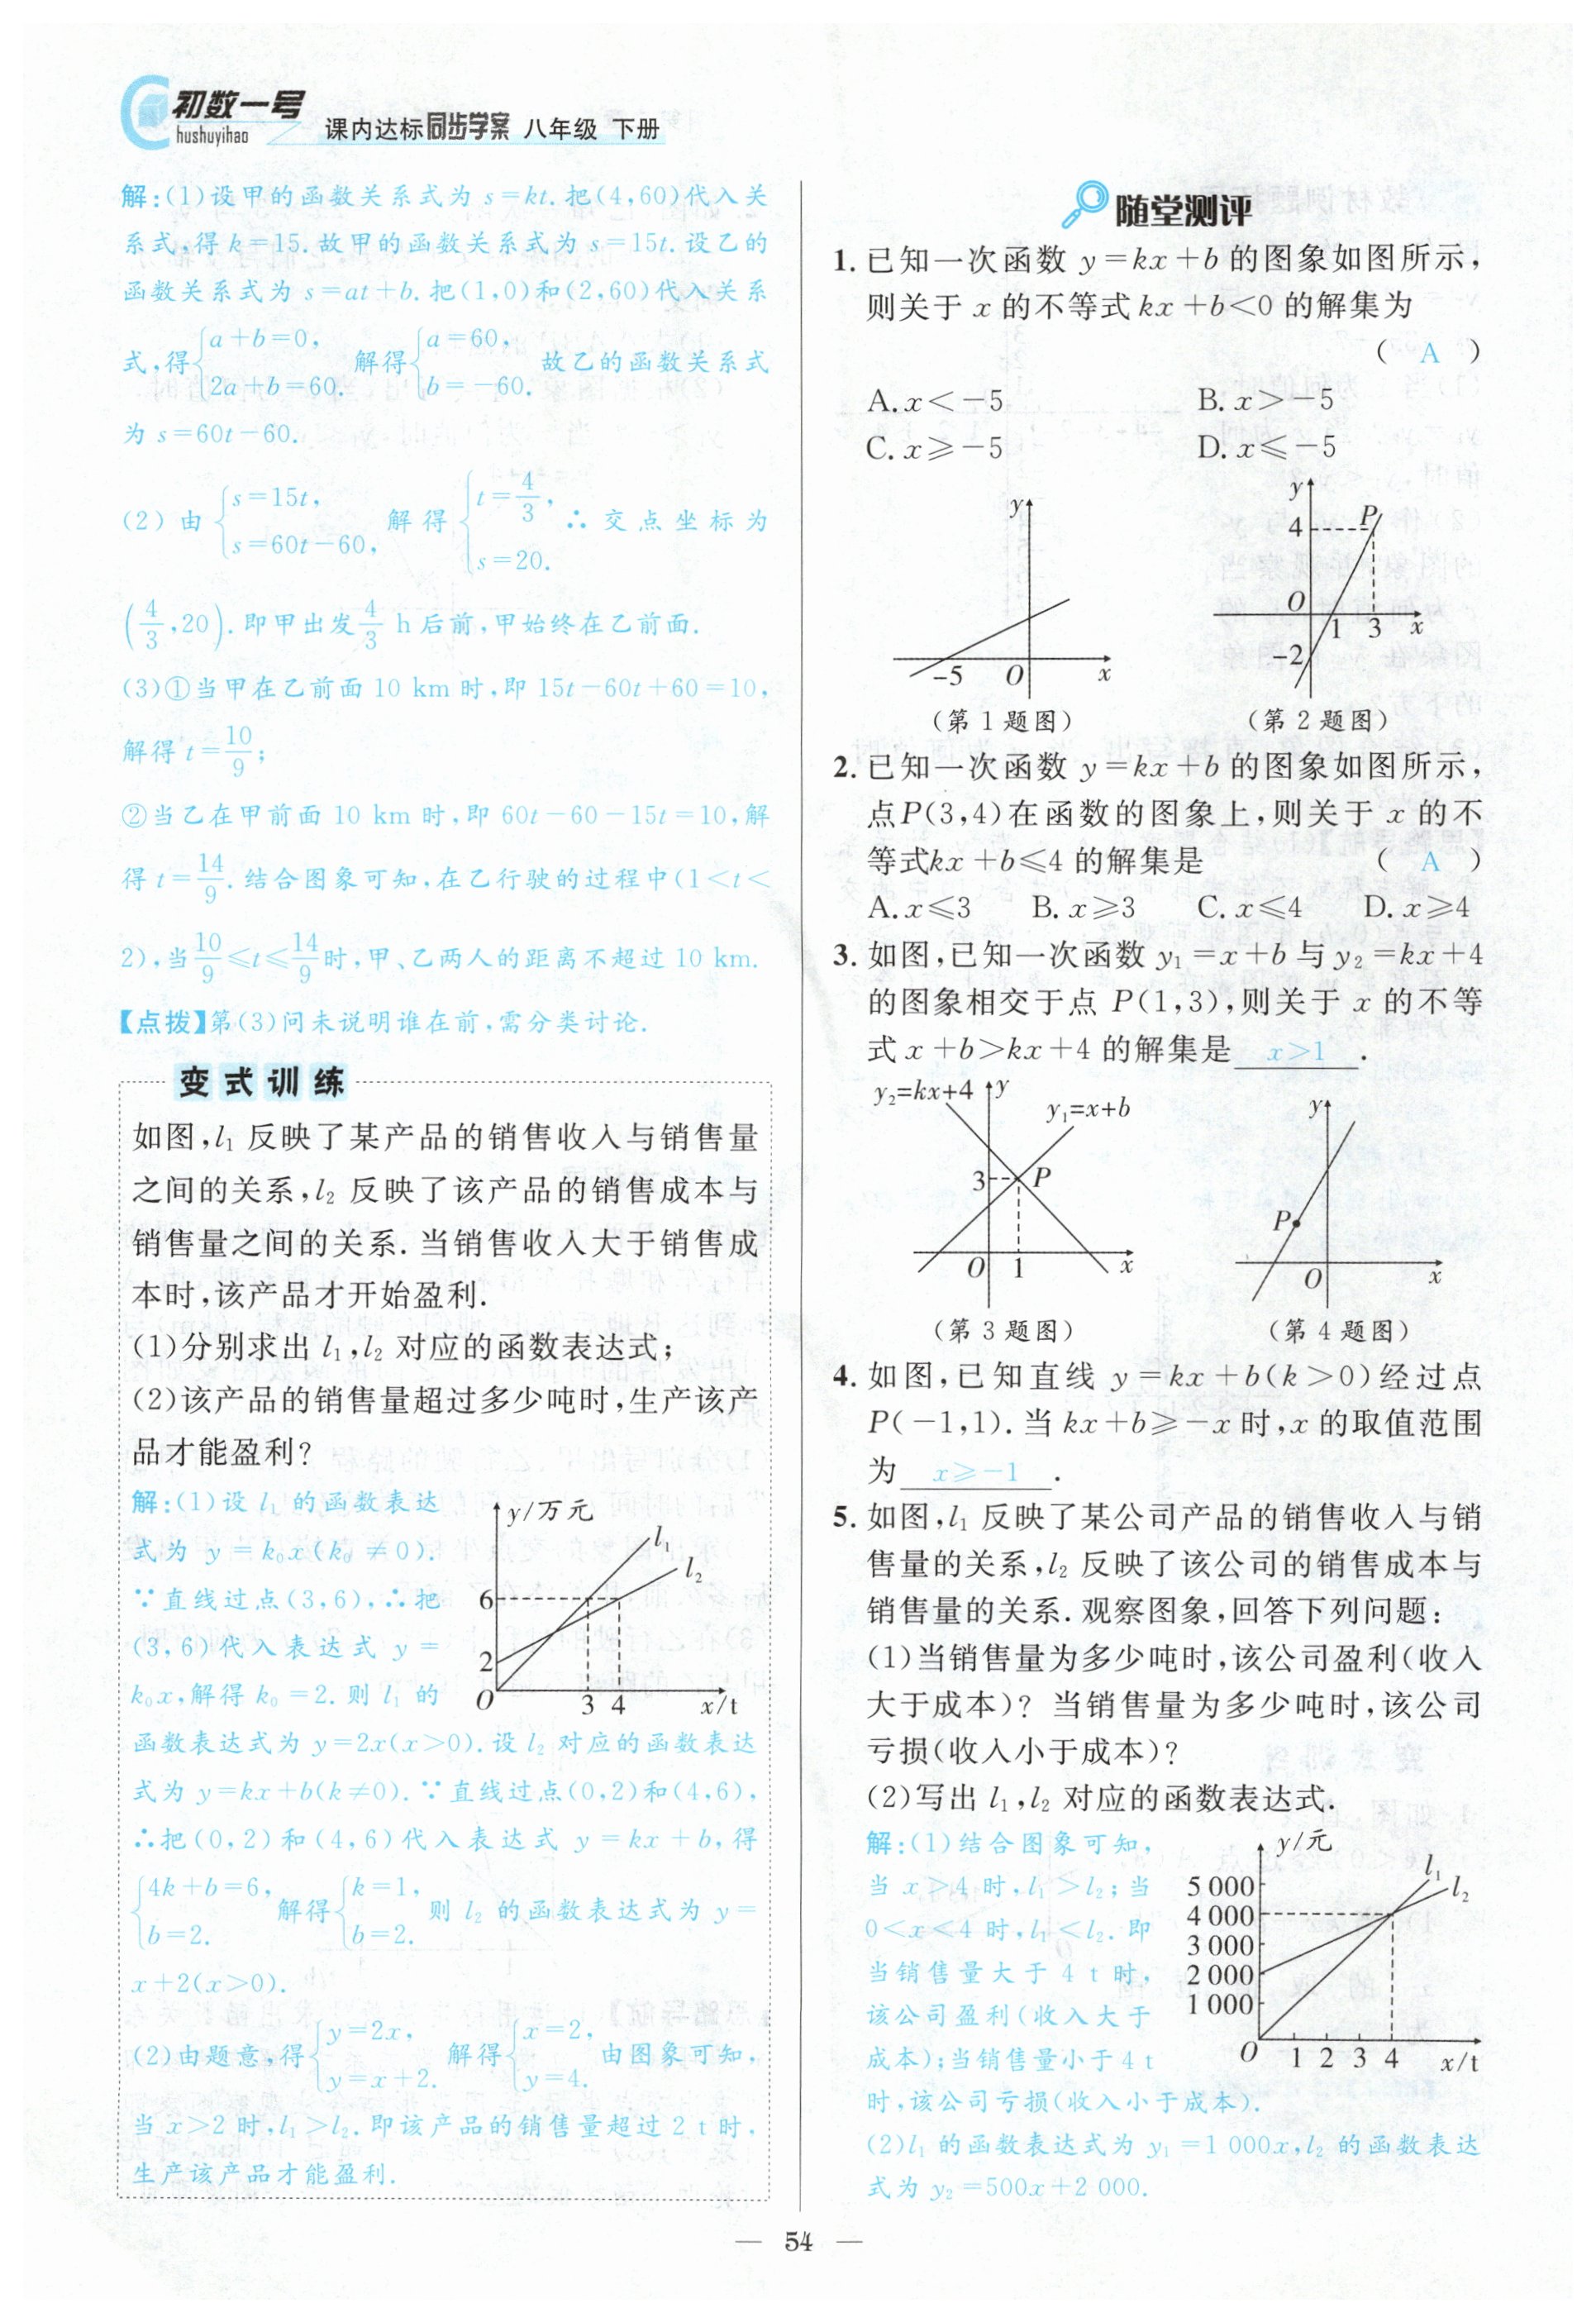 初数一号
hushuyihao
课内达标同步学案 八年级 下册
解:(1)设甲的函数关系式为 s=kt.把(4,60)代入关
系式,得 k=15.故甲的函数关系式为 s=15t.设乙的
函数关系式为 s=at+b.把(1,0)和(2,60)代入关系
式,得{a+b=0, 2a+b=60. 解得{a=60, b=-60. 故乙的函数关系式
为 s=60t-60.
(2)由{s=15t, s=60t-60, 解得{t=4/3, s=20. ∴交点坐标为
(4/3,20).即甲出发4/3 h后前,甲始终在乙前面.
(3)①当甲在乙前面 10 km 时,即 15t-60t+60=10,
解得 t=10/9;
②当乙在甲前面 10 km 时,即 60t-60-15t=10,解
得 t=14/9.结合图象可知,在乙行驶的过程中(1<t<
2),当10/9≤t≤14/9时,甲、乙两人的距离不超过 10 km.
【点拨】第(3)问未说明谁在前,需分类讨论.
变式训练
如图,l₁ 反映了某产品的销售收入与销售量
之间的关系,l₂ 反映了该产品的销售成本与
销售量之间的关系.当销售收入大于销售成
本时,该产品才开始盈利.
(1)分别求出 l₁,l₂ 对应的函数表达式;
(2)该产品的销售量超过多少吨时,生产该产
品才能盈利?
解:(1)设 l₁ 的函数表达
式为 y=k₀x(k₀≠0).
∵直线过点(3,6),∴把
(3,6)代入表达式 y=
k₀x,解得 k₀=2.则 l₁ 的
y/万元
l₁
l₂
6
2
O
3 4
x/t
函数表达式为 y=2x(x>0).设 l₂ 对应的函数表达
式为 y=kx+b(k≠0).∵直线过点(0,2)和(4,6),
∴把(0,2)和(4,6)代入表达式 y=kx+b,得
{4k+b=6, b=2. 解得{k=1, b=2. 则 l₂ 的函数表达式为 y=
x+2(x>0).
(2)由题意,得{y=2x, y=x+2. 解得{x=2, y=4. 由图象可知,
当 x>2 时,l₁>l₂.即该产品的销售量超过 2 t 时,
生产该产品才能盈利.
随堂测评
1. 已知一次函数 y=kx+b 的图象如图所示,
则关于 x 的不等式 kx+b<0 的解集为
( A )
A. x<-5 B. x>-5
C. x≥-5 D. x≤-5
y
-5
O
x
(第 1 题图)
y
4
P
O
1
3
x
-2
(第 2 题图)
2. 已知一次函数 y=kx+b 的图象如图所示,
点P(3,4)在函数的图象上,则关于 x 的不
等式kx+b≤4 的解集是 ( A )
A. x≤3 B. x≥3 C. x≤4 D. x≥4
3. 如图,已知一次函数 y₁=x+b 与 y₂=kx+4
的图象相交于点 P(1,3),则关于 x 的不等
式 x+b>kx+4 的解集是 x>1 .
y₂=kx+4
y
y₁=x+b
3
P
O
1
x
(第 3 题图)
y
P
O
x
(第 4 题图)
4. 如图,已知直线 y=kx+b(k>0)经过点
P(-1,1).当 kx+b≥-x 时,x 的取值范围
为 x≥-1 .
5. 如图,l₁ 反映了某公司产品的销售收入与销
售量的关系,l₂ 反映了该公司的销售成本与
销售量的关系.观察图象,回答下列问题:
(1)当销售量为多少吨时,该公司盈利(收入
大于成本)?当销售量为多少吨时,该公司
亏损(收入小于成本)?
(2)写出 l₁,l₂ 对应的函数表达式.
解:(1)结合图象可知,
当 x>4 时,l₁>l₂;当
0<x<4 时,l₁<l₂.即
当销售量大于 4 t 时,
该公司盈利(收入大于
成本);当销售量小于 4 t
y/元
l₁
l₂
5 000
4 000
3 000
2 000
1 000
O
1 2 3 4
x/t
时,该公司亏损(收入小于成本).
(2)l₁ 的函数表达式为 y₁=1 000x,l₂ 的函数表达
式为 y₂=500x+2 000.
— 54 —